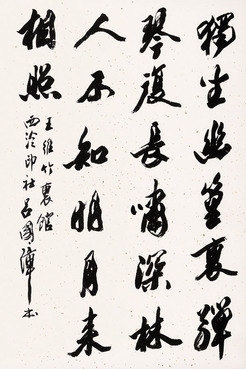 獨坐幽篁裏彈
琴復長嘯深林
人不知明月来
相照
王維竹裏館
西泠印社呂國璋书